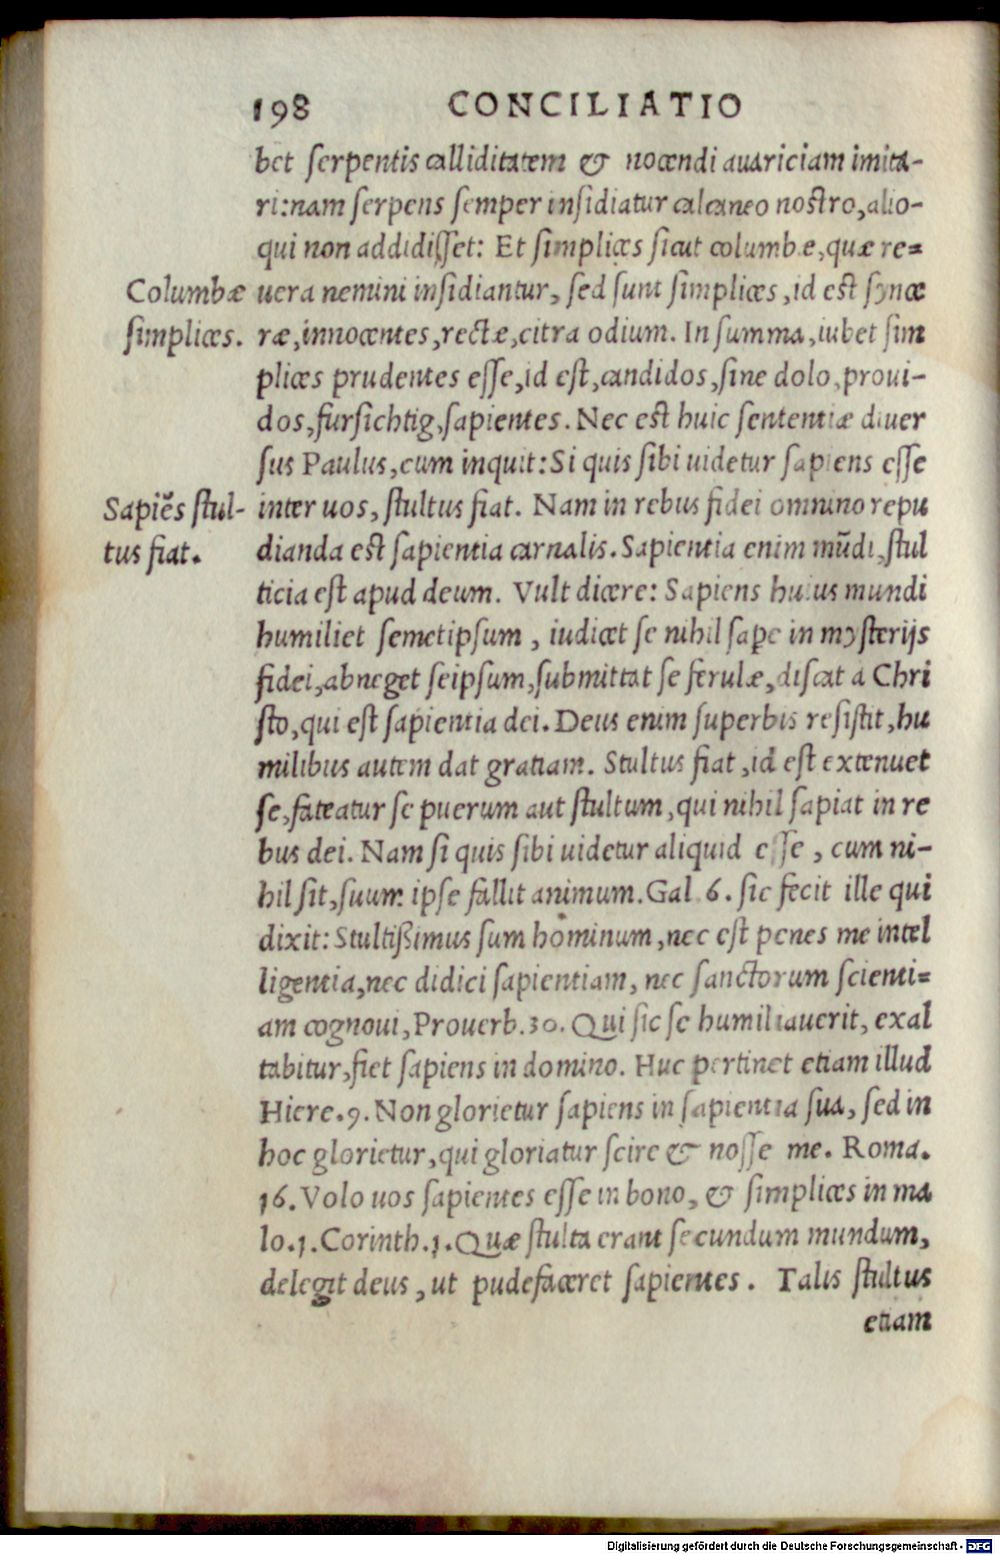 198 CONCILIATIO
bet serpentis calliditatem & nocendi auariciam imita-
ri: nam serpens semper insidiatur calcaneo nostro, alio-
qui non addidisset: Et simplices sicut columbæ, quæ re=
Columbæ simplices.
uera nemini insidiantur, sed sunt simplices, id est synce
ræ, innocentes, rectæ, citra odium. In summa, iubet sim
plices prudentes esse, id est, candidos, sine dolo, proui-
dos, fursichtig, sapientes. Nec est huic sententiæ diuer
sus Paulus, cum inquit: Si quis sibi uidetur sapiens esse
Sapiẽs stul-
tus fiat.
inter uos, stultus fiat. Nam in rebus fidei omnino repu
dianda est sapientia carnalis. Sapientia enim mũdi, stul
ticia est apud deum. Vult dicere: Sapiens huius mundi
humiliet semetipsum, iudicet se nihil sape in mysterijs
fidei, abneget seipsum, submittat se ferulæ, discat a Chri
sto, qui est sapientia dei. Deus enim superbis resistit, hu
milibus autem dat gratiam. Stultus fiat, id est extenuet
se, fateatur se puerum aut stultum, qui nihil sapiat in re
bus dei. Nam si quis sibi uidetur aliquid esse, cum ni-
hil sit, suum ipse fallit animum. Gal. 6. sic fecit ille qui
dixit: Stultißimus sum hominum, nec est penes me intel
ligentia, nec didici sapientiam, nec sanctorum scienti=
am cognoui, Prouerb. 30. Qui sic se humiliauerit, exal
tabitur, fiet sapiens in domino. Huc pertinet etiam illud
Hiere. 9. Non glorietur sapiens in sapientia sua, sed in
hoc glorietur, qui gloriatur scire & nosse me. Roma.
16. Volo uos sapientes esse in bono, & simplices in ma
lo. 1. Corinth. 1. Quæ stulta erant secundum mundum,
delegit deus, ut pudefaceret sapientes. Talis stultus
etiam
Digitalisierung gefördert durch die Deutsche Forschungsgemeinschaft - DFG